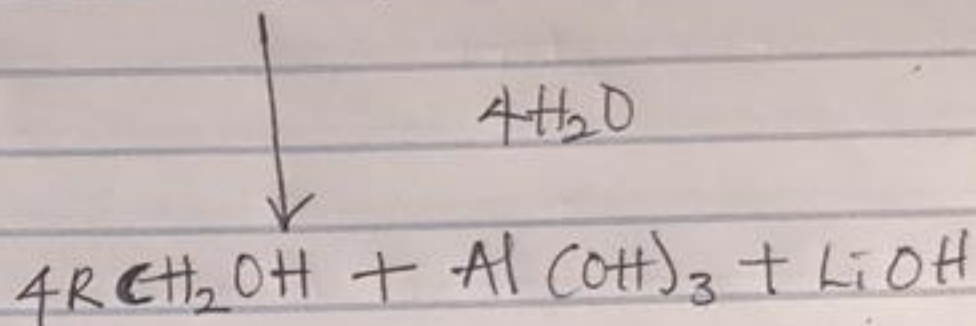 4H₂O
4RCH₂OH + Al (OH)₃ + LiOH